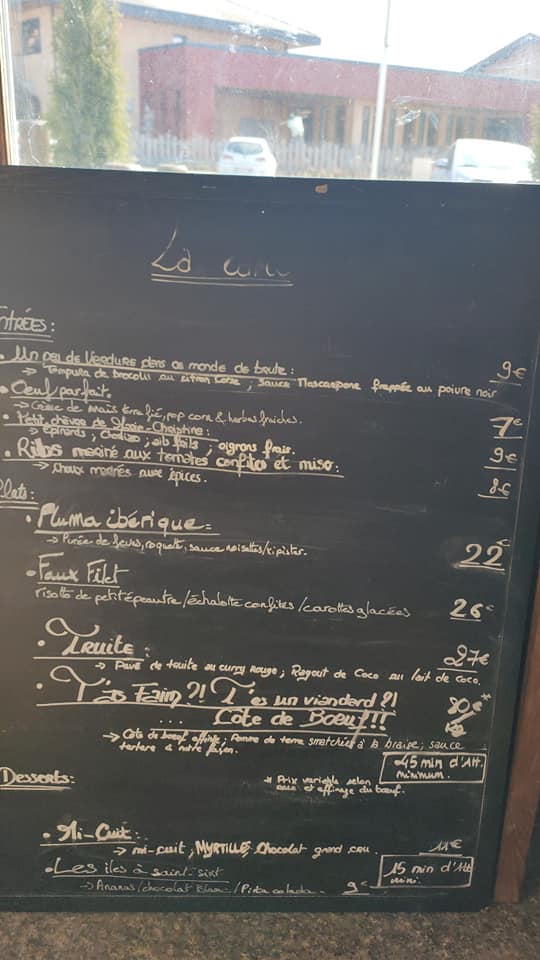 La carte
ENTRÉES:
• Un peu de Verdure dans ce monde de brute: 9€
→ Tempura de brocoli au citron ; Sauce Mascarpone frappée au poivre noir
• Oeuf parfait. 7€
→ Crème de maïs , pop corn & herbes fraiches.
• Petit chèvre de -Christine: 9€
→ épinards ; ; ; oignons frais.
• mariné aux tomates confites et miso: 8€
→ Choux marinés aux épices.
Plats:
• Pluma ibérique= 22€
→ Purée de feves, roquette, sauce noisettes/
• Faux Filet
risotto de petit épeautre/échalotte confites/carottes glacées 26€
• Truite: 27€
→ Pavé de truite au curry rouge ; Ragout de Coco au lait de coco.
• T'as Faim?! T'es un viandard?! 80€*
... Côte de Boeuf!! Kg
→ Cote de boeuf affinée, Pomme de terre à la braise; sauce
tartare à notre façon.
45 min d'Att.
minimum.
Desserts:
* Prix variable selon
et affinage du boeuf.
• Mi-Cuit: 11€
→ mi-cuit, MYRTILLE, Chocolat grand cru.
15 min d'Att
mini.
• Les iles à saint-sixt
→ Ananas/chocolat Blanc/Pina colada. 9€